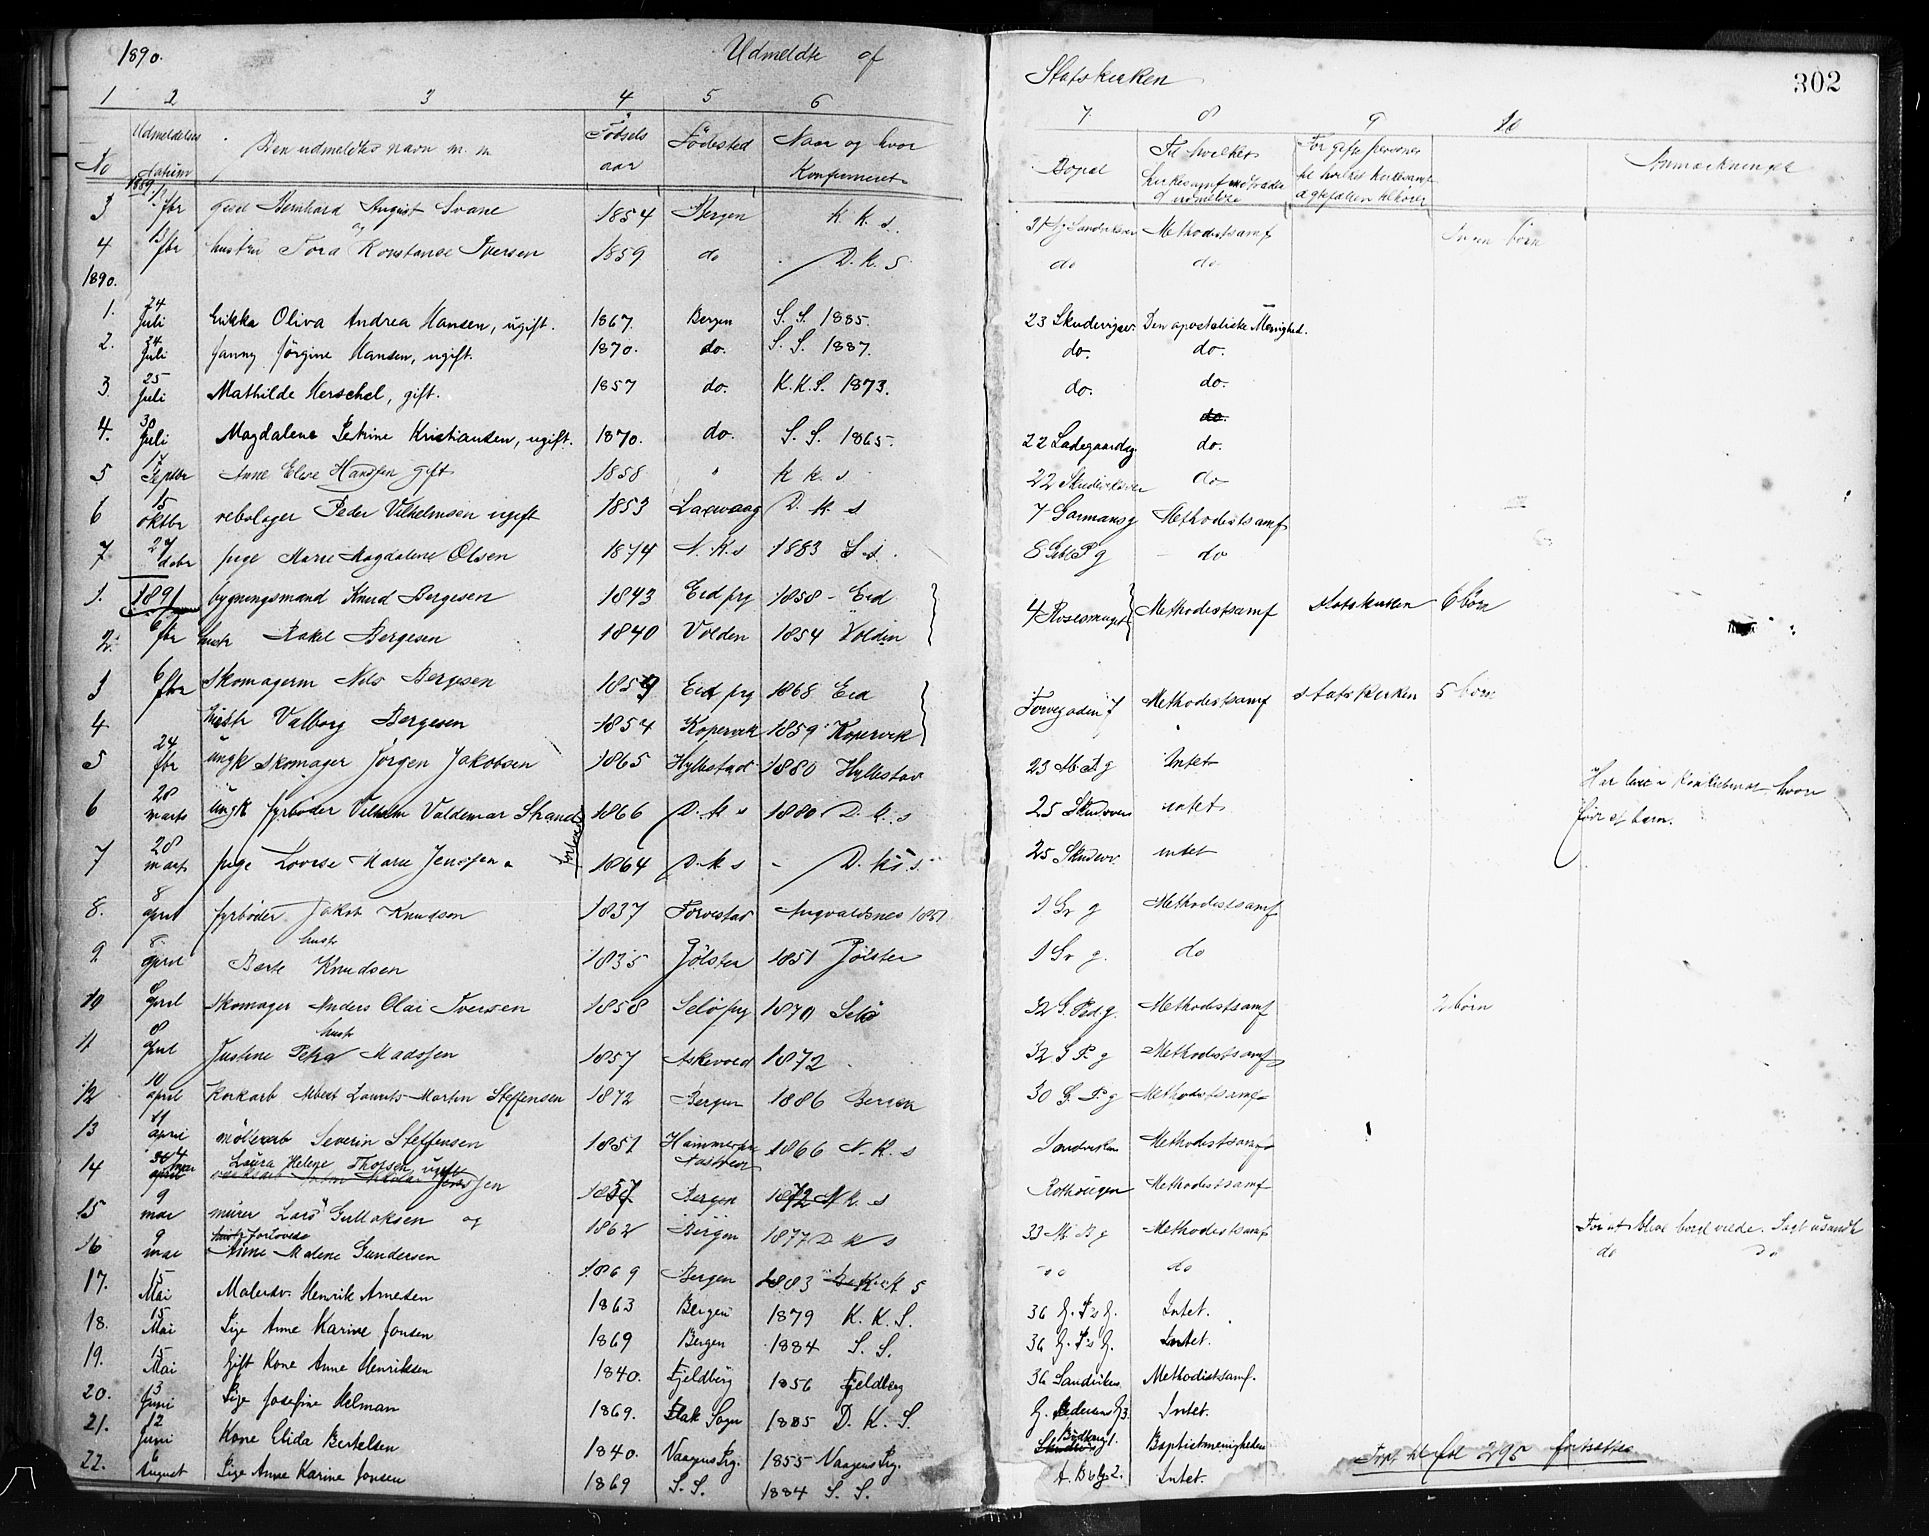 1890. Udmeldte af Statskirken 302
1 2 3 4 5 6 7 8 9 10
No Udmeldelses datum Den udmeldtes navn m. m Fødsels aar Fødested Naar og hvor Konfirmeret Bopæl Til hvilket kirkesamf indtræder d udmeldte For gifte personer til hvilket kirkesamf ægtefællen tilhører Anmærkninger
1889
3 fbr Bernhard August Svane 1854 Bergen K. K. s. Methodistsamf Ingen børn
og
4 fbr hustru Tora Konstanse Iversen 1859 do D. K. S do do
1890.
1. 24 Juli Erikka Oliva Andrea Hansen, ugift. 1867. Bergen S. S. 1885. 23 Skudevigsv. Den apostoliske Menighed.
2. 24 Juli Fanny Jörgine Hansen, ugift. 1870. do. S. S. 1887. do. do.
3. 25 Juli Mathilde Herschel, gift. 1857 do. K.K.S. 1873. do. do.
do.
4. 30 Juli Magdalene Petrine Kristiansen, ugift. 1870. do. S. S. 1865. 22 Ladegaardsg. do.
5 17 Septbr Anne Elise Hanssen gift 1858 " K K. s 22 Skudeviksvei do
6 15 oktbr rebslager Peder Vilhelmsen ugift 1853 Laxevaag D. K. s 7 Methodistsamf
7. 27 decbr pige Marie Magdalene Olsen 1874 N. K. s 1883 S s. 8 do
1. 1891 bygningsmand Knud Bergesen 1843 Eid prg 1858 - Eid 4 Rosesmuget Methodistsamf statskirken 6 børn
2. 6 fbr hustr Rakel Bergesen 1840 Volden 1854 Volden
3 6 fbr Skomagerm Nils Bergesen Eid prg 1868 Eid Torvegaden 7 Methodistsamf statskirken 5 børn
4 hustr Valborg Bergesen 1854 Kopervik 1859 Kopervik
5 24 fbr ungk Skomager Jørgen Jakobsen 1865 Hyllestad 1880 Hyllestad 23 M. P. g Intet
6 28 marts ungk fyrbøder Vilhelm Valdemar Strand 1866 D. K s 1880 D. K. s 25 Skudevv intet Her lever i konkubinat, hvori
før et barn.
7 28 marts pige Lovise Marie Jenssen forlovede 1864 D. K s - D. K. s. 25 Skudevv. intet
8. 8 april fyrbøder Jakob Knudsen 1837 Torvestad Augvaldsnes 1851 1 Sv g Methodistsamf
hustr
9 8 april Berte Knudsen 1835 Jølster 1851 Jølster 1 Sv g. do
10 8 april Skomager Anders Olai Iversen 1858 Selø prg 1870 Selø 32 G. Ped g. Methodistsamf 2 børn
hustr
11 8 april Justine Petra Madssen 1857 Askevold 1872 32 G P. g Methodistsamf
12 10 april Korkarb Albert Laurits Martin Steffensen 1872 Bergen 1886 Bergen 30 G. P. g Methodistsamf
13 11 april møllerarb Severin Steffensen 1851 Hammer 1866 N. K. s Sandviken Methodistsamf
14 april Laura Helene Thorsen ugift Bergen 1872 N K. s Rothougen Methodistsamf
15 9 mai murer Lars Gullaksen og 1862 Bergen 1877 D K s 33 M. B g Methodistsamf For at blive borl. viede. Sagt usandt
hustr forlovede
16 9 mai Anne Malene Gundersen 1869 Bergen 1883 K K S do do do do
17. 15 Mai Malersv. Henrik Arnesen 1863 Bergen 1879 K. K. S. 36 G. Ps G. Intet.
18. 15 Mai Pige Anne Karine Jonsen 1869 Bergen 1884 S. S. 36 G. Ps G. Intet.
19. 15 Mai Gift Kone Anne Henriksen 1840. Fjeldberg 1856 Fjeldberg 36 Sandviken Methodistsamf.
20. 3 Juni Pige Josefine Helman 1869. Flak Sogn 1885 D. K. S. G. Pedersen G 3. Intet.
21. 12 Juni Kone Elida Bertelsen 1840. Vaagens Prg. 1855 Vaagens Prg. Baptistmenigheden
22. 6 August Pige Anne Karine Jonsen 1869 S. S. 1884 S. S. A. B v G 2. Intet.
fol 295 fortsættes